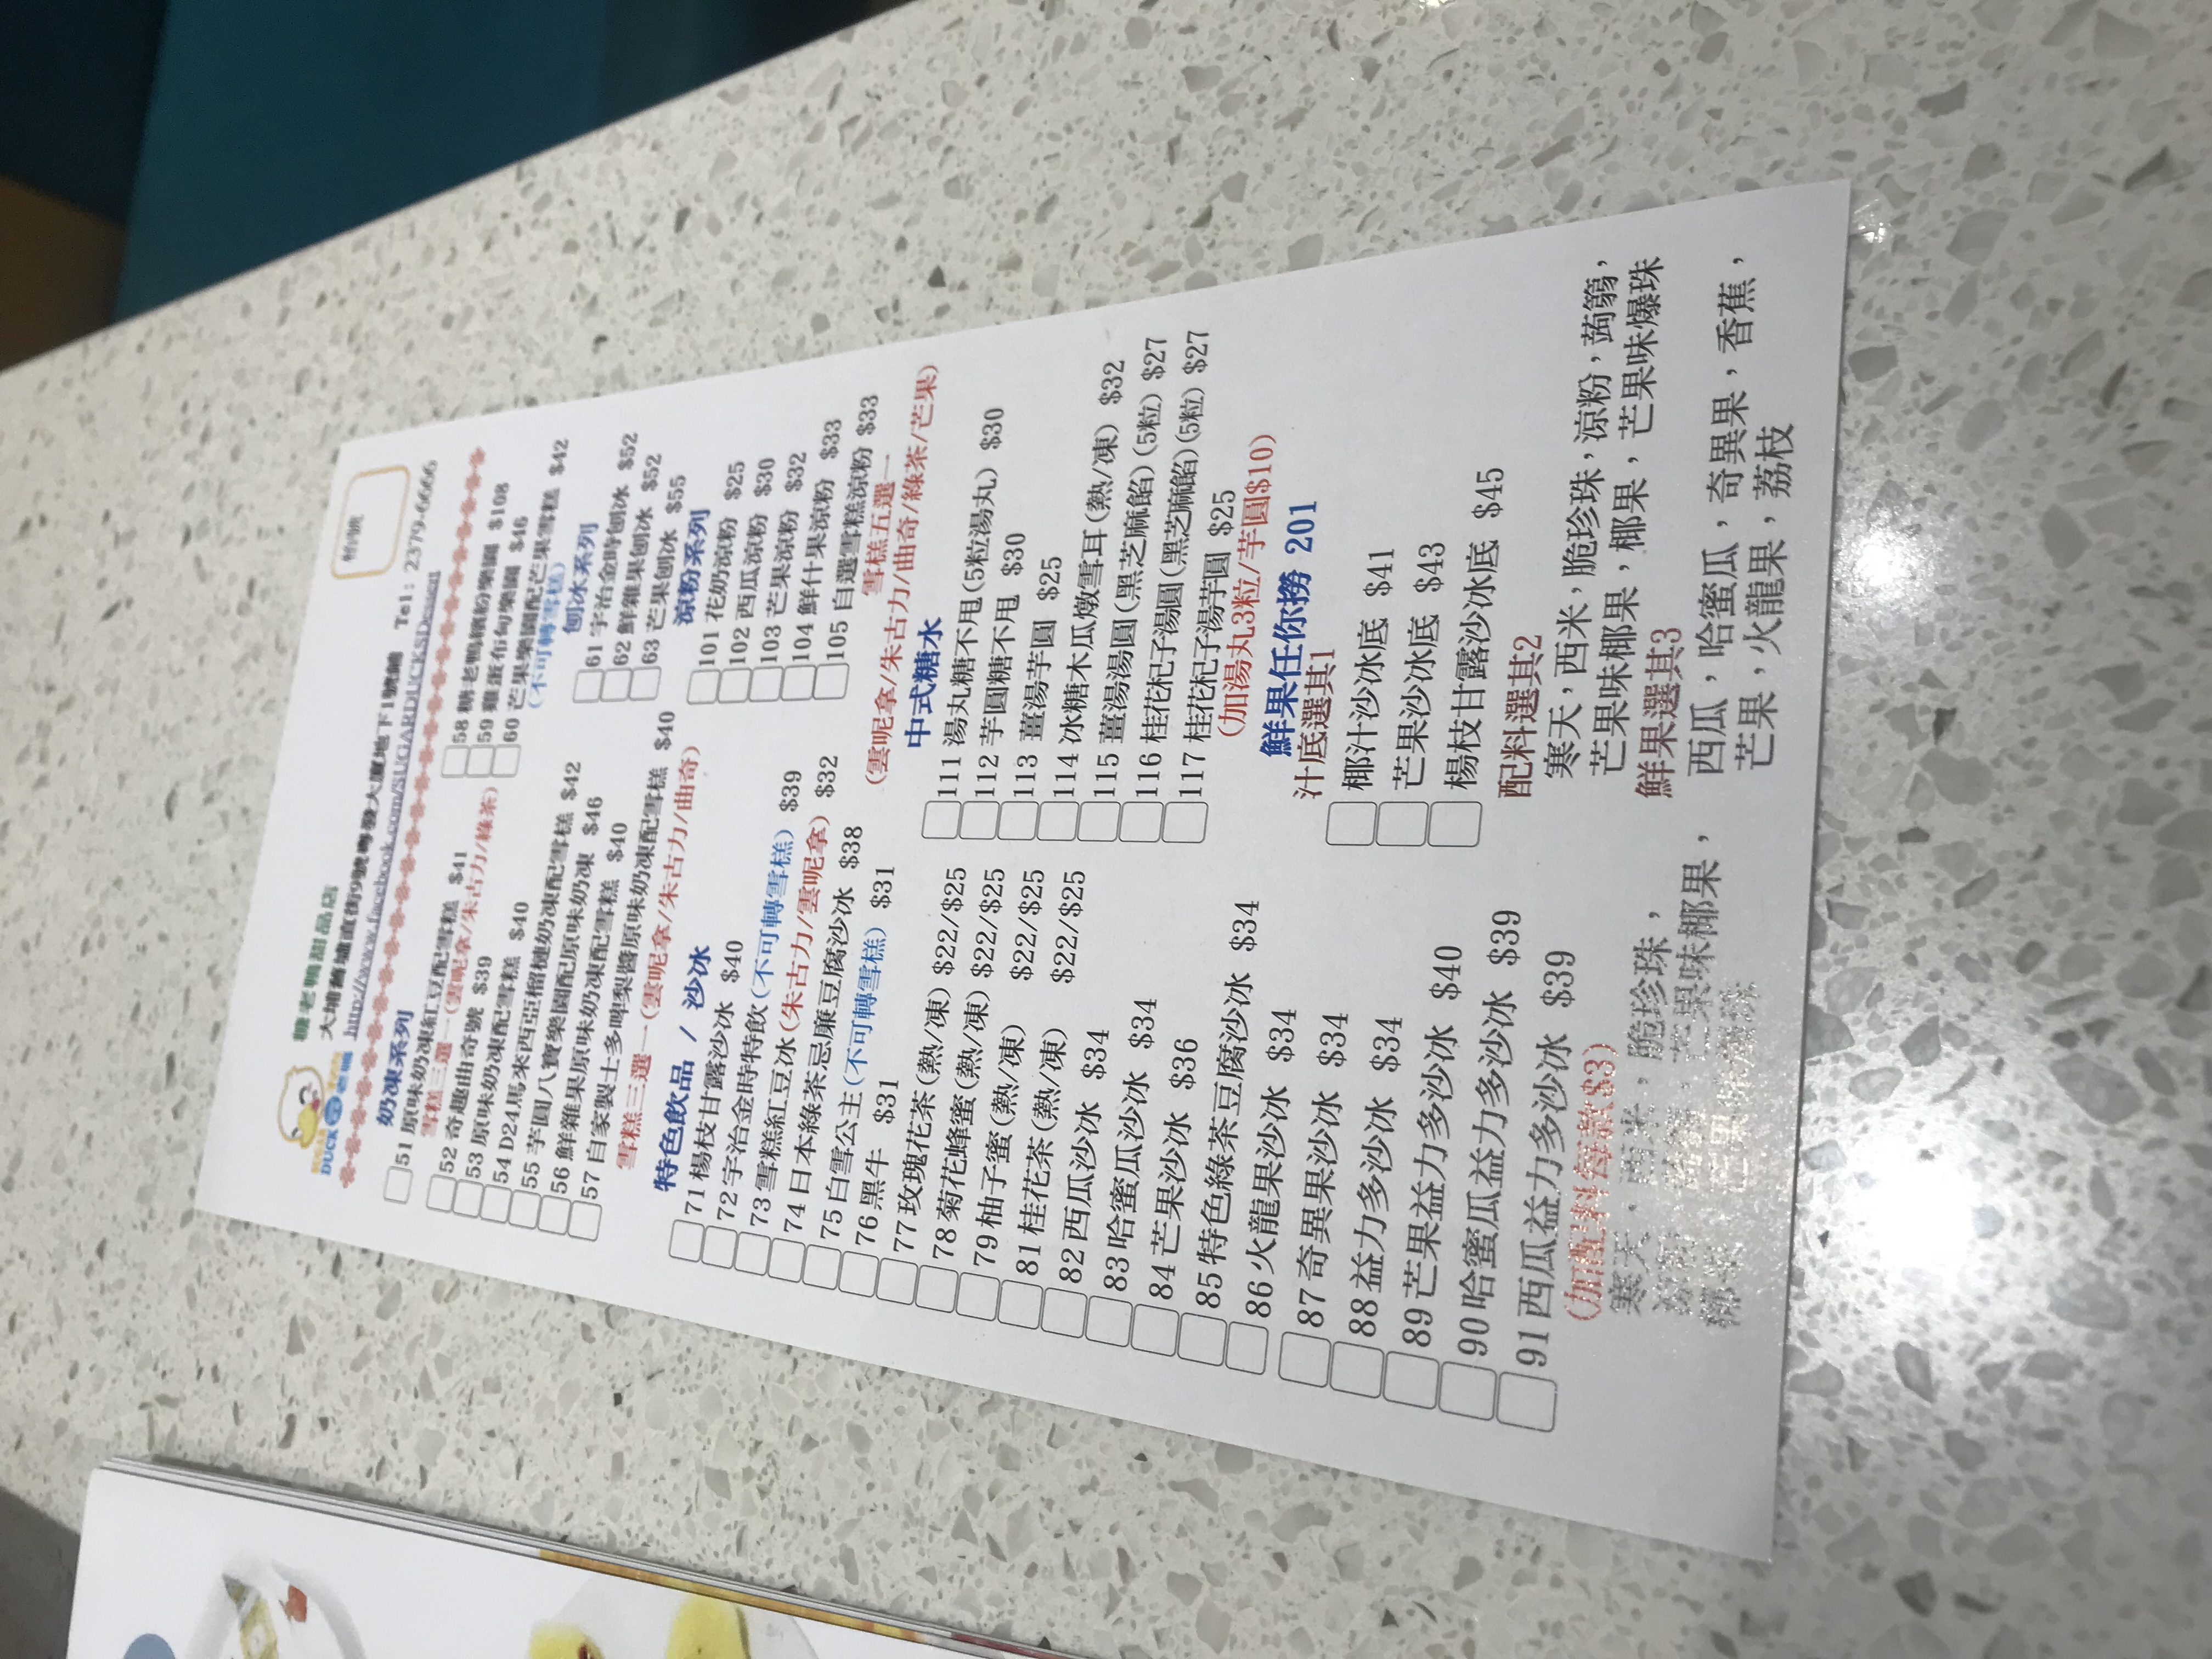 糖老鴨甜品店
大埔舊墟直街9號粵發大廈地下1號舖 Tel: 2379-6666
http://www.facebook.com/SUGARDUCKSDessert
枱號
奶凍系列
51 原味奶凍紅豆配雪糕 $41
雪糕三選一(雲呢拿/朱古力/綠茶)
52 奇趣曲奇號 $39
53 原味奶凍配雪糕
54 D24馬來西亞榴槤奶凍配雪糕 $40
55 芋圓八寶樂園配原味奶凍 $42
56 鮮雜果原味奶凍配雪糕 $46
57 自家製士多啤梨醬原味奶凍配雪糕 $40
雪糕三選一(雲呢拿/朱古力/曲奇)
58 糖老鴨繽紛樂園 $108
59 雞蛋布甸樂園 $46
60 芒果樂園配芒果雪糕 $42
(不可轉雪糕)
刨冰系列
61 宇治金時刨冰 $52
62 鮮雜果刨冰 $52
63 芒果刨冰 $55
涼粉系列
101 花奶涼粉 $25
102 西瓜涼粉 $30
103 芒果涼粉 $32
104 鮮什果涼粉 $33
105 自選雪糕涼粉 $33
雪糕五選一
(雲呢拿/朱古力/曲奇/綠茶/芒果)
特色飲品 / 沙冰
71 楊枝甘露沙冰 $40
72 宇治金時特飲(不可轉雪糕) $39
73 雪糕紅豆冰(朱古力/雲呢拿) $32
74 日本綠茶忌廉豆腐沙冰 $38
75 白雪公主(不可轉雪糕) $31
76 黑牛 $31
77 玫瑰花茶(熱/凍) $22/$25
78 菊花蜂蜜(熱/凍) $22/$25
79 柚子蜜(熱/凍) $22/$25
81 桂花茶(熱/凍) $22/$25
82 西瓜沙冰 $34
83 哈蜜瓜沙冰 $34
84 芒果沙冰 $36
85 特色綠茶豆腐沙冰 $34
86 火龍果沙冰 $34
87 奇異果沙冰 $34
88 益力多沙冰 $34
89 芒果益力多沙冰 $40
90 哈蜜瓜益力多沙冰 $39
91 西瓜益力多沙冰 $39
(加配料每款$3)
寒天，西米，脆珍珠，
芒果味椰果，
中式糖水
111 湯丸糖不甩(5粒湯丸) $30
112 芋圓糖不甩 $30
113 薑湯芋圓 $25
114 冰糖木瓜燉雪耳(熱/凍) $32
115 薑湯湯圓(黑芝麻餡)(5粒) $27
116 桂花杞子湯圓(黑芝麻餡)(5粒) $27
117 桂花杞子湯芋圓 $25
(加湯丸3粒/芋圓$10)
鮮果任你撈 201
汁底選其1
椰汁沙冰底 $41
芒果沙冰底 $43
楊枝甘露沙冰底 $45
配料選其2
寒天，西米，脆珍珠，涼粉，蒟蒻，
芒果味椰果，椰果，芒果味爆珠
鮮果選其3
西瓜，哈蜜瓜，奇異果，香蕉，
芒果，火龍果，荔枝